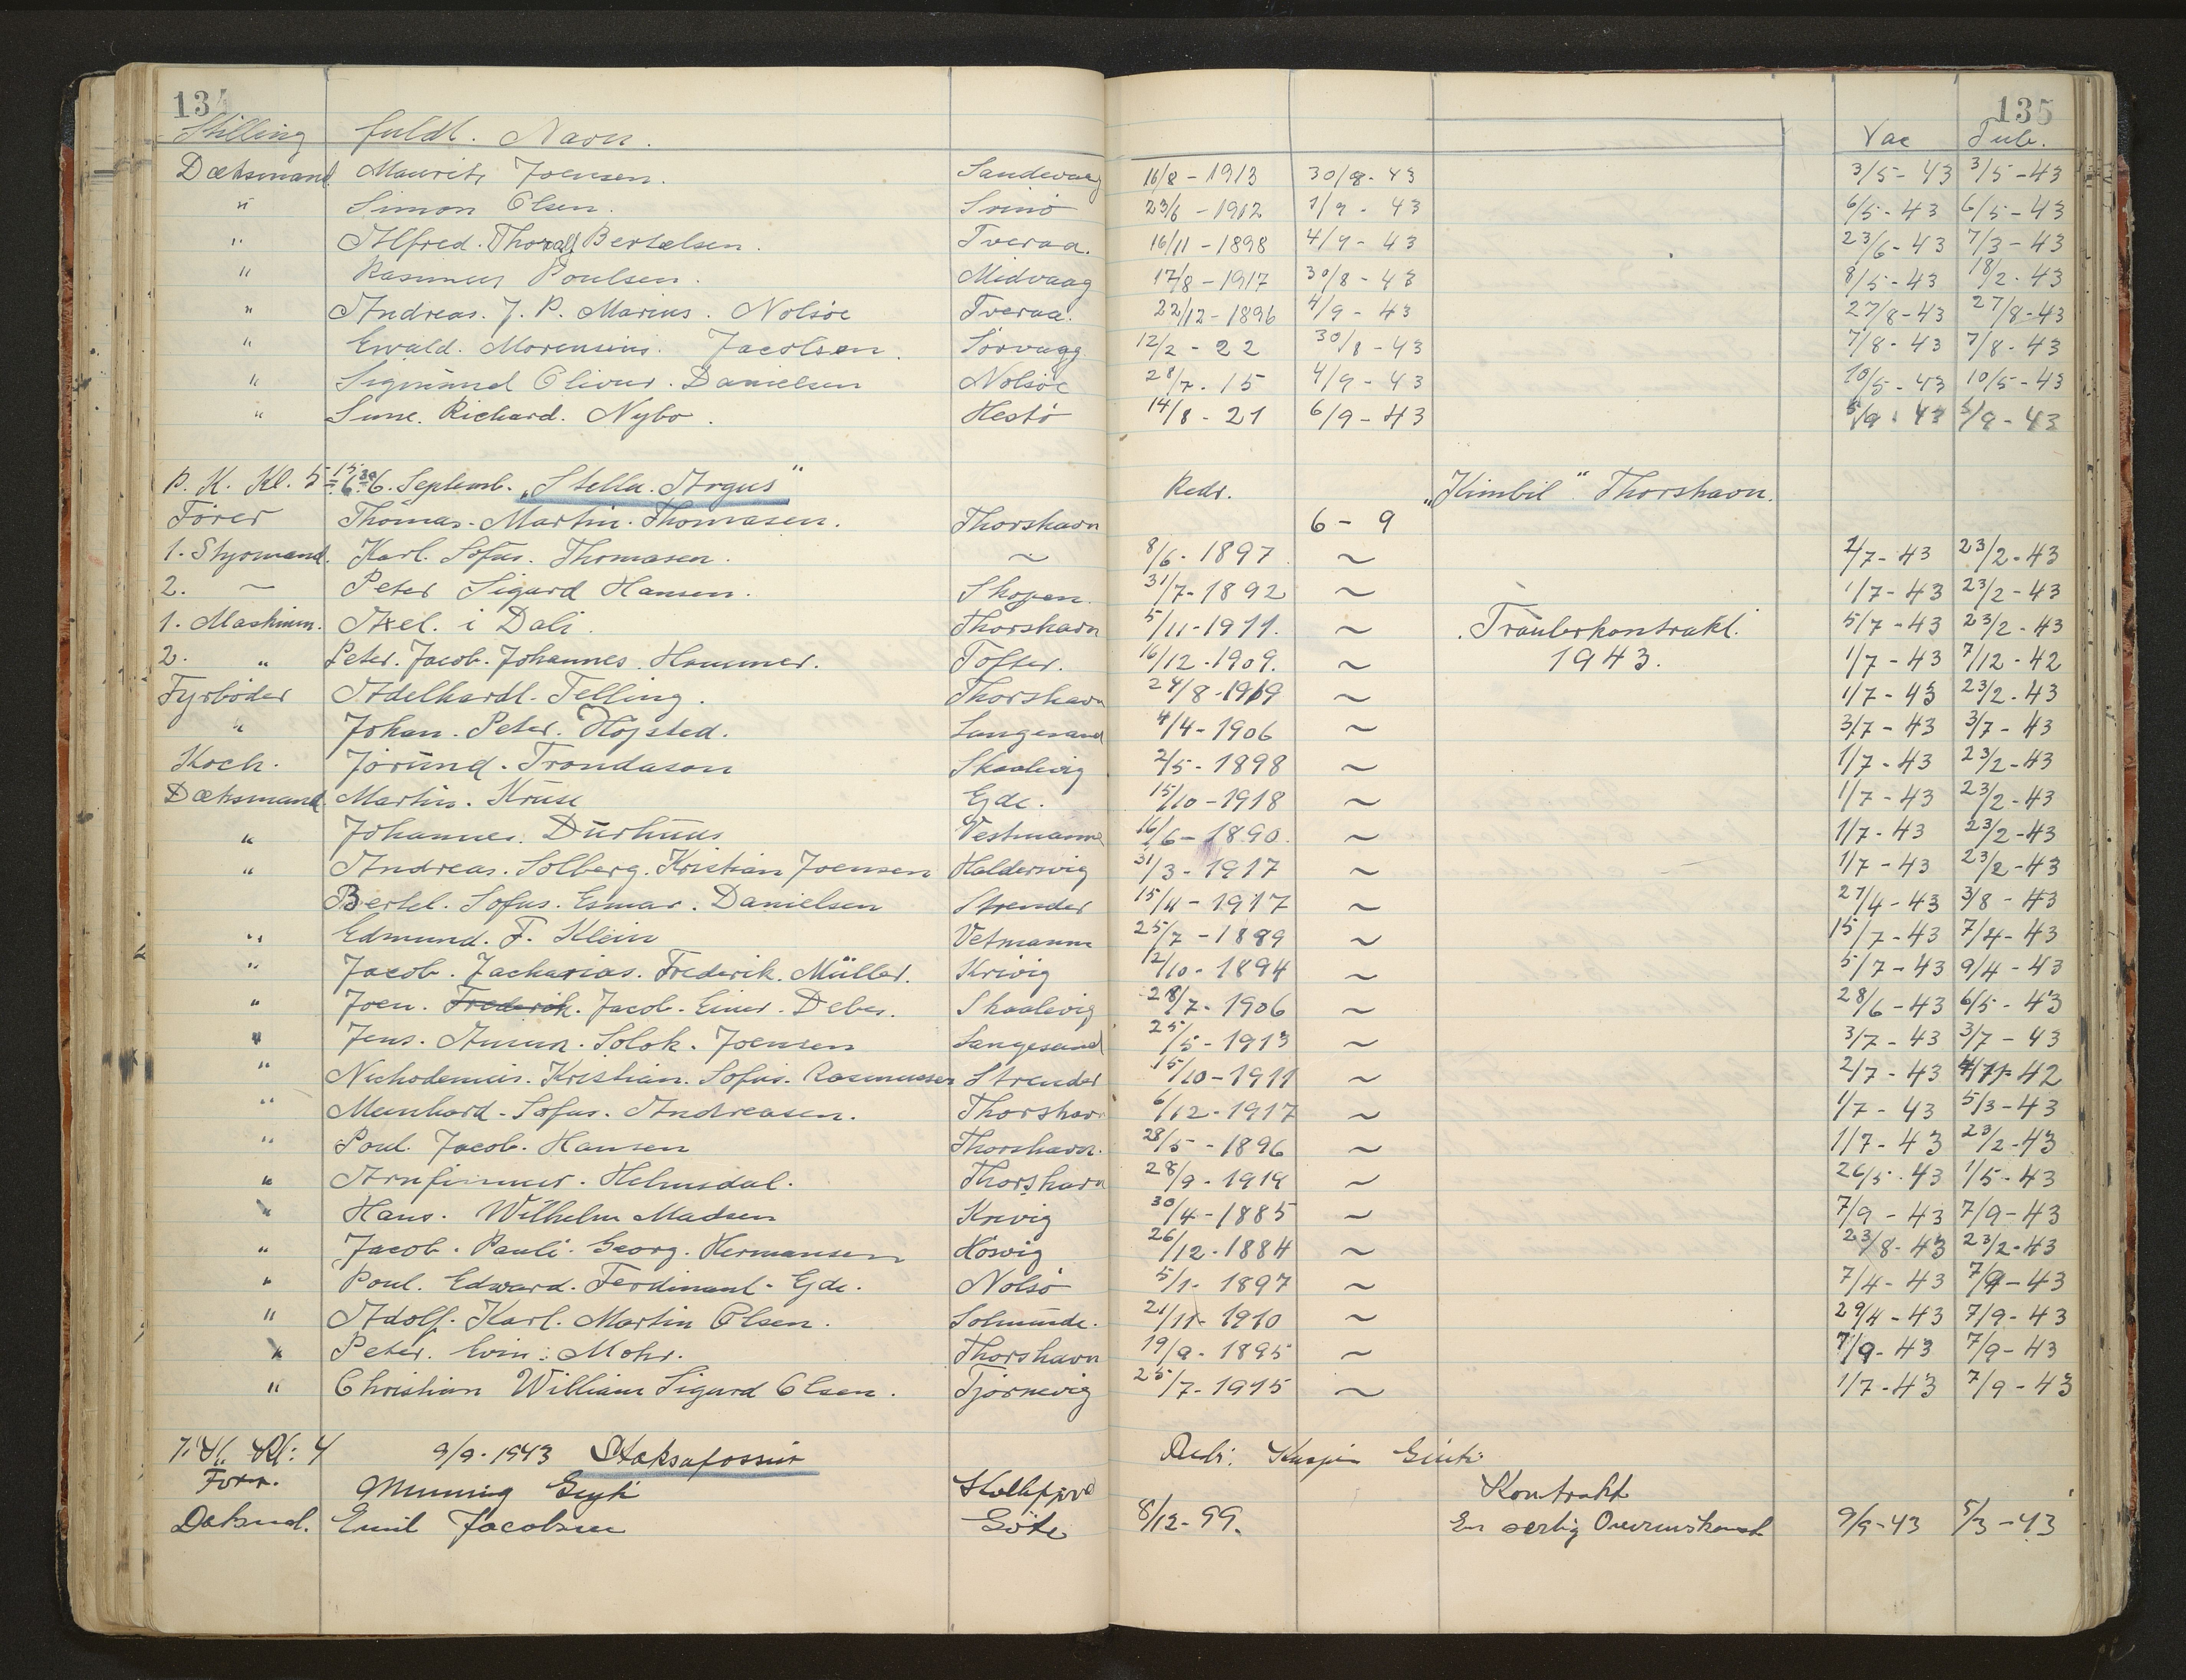 134 135
Stilling fuldt. Navn. Vac Tub.
Dæksmand Maurits Joensen. Sandevaag 16/8 - 1913 30/8 - 43 3/5 - 43 3/5 - 43
" Simon Olsen. Svinö 23/6 - 1912 1/9 - 43 6/5 - 43 6/5 - 43
" Alfred. Thoralf Bertelsen. Tveraa. 16/11 - 1898 4/9 - 43 23/6 - 43 7/3 - 43
" Rasmus Poulsen. Midvaag 17/8 - 1917 30/8 - 43 8/5 - 43 18/2 - 43
" Andreas. J. P. Marius. Nolsöe Tveraa. 22/12 - 1896 4/9 - 43 27/8 - 43 27/8 - 43
" Ewald. Morensius. Jacobsen. Sörvagg 12/2 - 22 30/8 - 43 7/8 - 43 7/8 - 43
" Sigmund Oliver. Danielsen Nolsöe 28/7 - 15 4/9 - 43 10/5 - 43 10/5 - 43
" Sune. Richard. Nybo. Hestö 14/8 - 21 6/9 - 43 5/9 - 43 5/9 - 43
P. K. Kl. 5 15 = 6 30 6. Septemb. „Stella. Argus" Redr. „Kimbil" Thorshavn.
Förer Thomas. Martin. Thomasen. Thorshavn 6 - 9
1. Styrmand. Karl. Sofus. Thomasen. ~ 8/6 - 1897 ~ 2/7 - 43 23/2 - 43
2. ~ Peter Sigurd Hansen. Skopen. 31/7 - 1892 ~ 1/7 - 43 23/2 - 43
1. Maskinm. Axel. i Dali. Thorshavn 5/11 - 1911. ~ Traulerkontrakt. 5/7 - 43 23/2 - 43
2. " Peter. Jacob. Johannes. Hammer. Tofter. 16/12 - 1909. ~ 1943. 1/7 - 43 7/12 - 42
Fyrböder Adelhardt. Telling. Thorshavn 24/8 - 1919 ~ 1/7 - 43 23/2 - 43
" Johan. Peter. Höjsted. Langesand 4/4 - 1906 ~ 3/7 - 43 3/7 - 43
Koch. Jörund. Trondason Skaalevig 2/5 - 1898 ~ 1/7 - 43 23/2 - 43
Dæksmand Martin. Kruse Ejde. 15/10 - 1918 ~ 1/7 - 43 23/2 - 43
" Johannes. Durhuus Vestmanna 16/6 - 1890. ~ 1/7 - 43 23/2 - 43
" Andreas. Solberg. Kristian Joensen Haldersvig 31/3 - 1917 ~ 1/7 - 43 23/2 - 43
Bertel. Sofus. Esmar. Danielsen Strender 15/11 - 1917 ~ 27/4 - 43 3/8 - 43
" Edmund. F. Klein Vetmanna 25/7 - 1889 ~ 15/7 - 43 7/4 - 43
" Jacob. Zacharias. Frederik. Müller. Krivig 12/10 - 1894 ~ 5/7 - 43 9/4 - 43
" Joen. Frederik. Jacob. Einer. Debes. Skaalevig 28/7 - 1906 ~ 28/6 - 43 6/5 - 43
" Jens. Solok. Joensen Langesand 25/5 - 1913 ~ 3/7 - 43 3/7 - 43
" Nichodemus. Kristian. Sofus. Rasmussen Strender 15/10 - 1911 ~ 2/7 - 43 4/11 - 42
" Meinhard. Sofus. Andreasen. Thorshavn 6/12 - 1917 ~ 1/7 - 43 5/3 - 43
" Poul. Jacob. Hansen Thorshavn. 28/5 - 1896 ~ 1/7 - 43 23/2 - 43
" Arnfinnur. Helmsdal. Thorshavn 28/9 - 1919 ~ 26/5 - 43 1/5 - 43
" Hans. Wilhelm Madsen Krivig 30/4 - 1885 ~ 7/9 - 43 7/9 - 43
" Jacob. Pauli. Georg. Hermansen Hösvig 26/12 - 1884 ~ 23/8 - 43 23/2 - 43
" Poul. Edward. Ferdinant. Ejde. Nolsö 5/1 - 1897 ~ 7/4 - 43 7/9 - 43
" Adolf. Karl. Martin Olsen. Solmunde. 21/11 - 1910 ~ 29/4 - 43 7/9 - 43
" Peter. Evin. Mohr. Thorshavn 19/9 - 1895 ~ 7/9 - 43 7/9 - 43
" Christian William Sigurd Olsen. Tjörnevig 25/7 - 1915 ~ 1/7 - 43 7/9 - 43
Kl: 4 9/9 - 1943 Staksafossur Redr:
Förer. Kontrakt
Daksmd. Emil Jacobsen Göte 8/12 - 99. En særlig Overenskomst 9/9 - 43 5/3 - 43